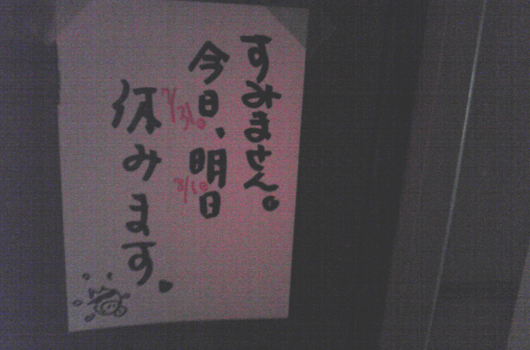 すみません。
今日、明日
7/31
8/1
休みます。